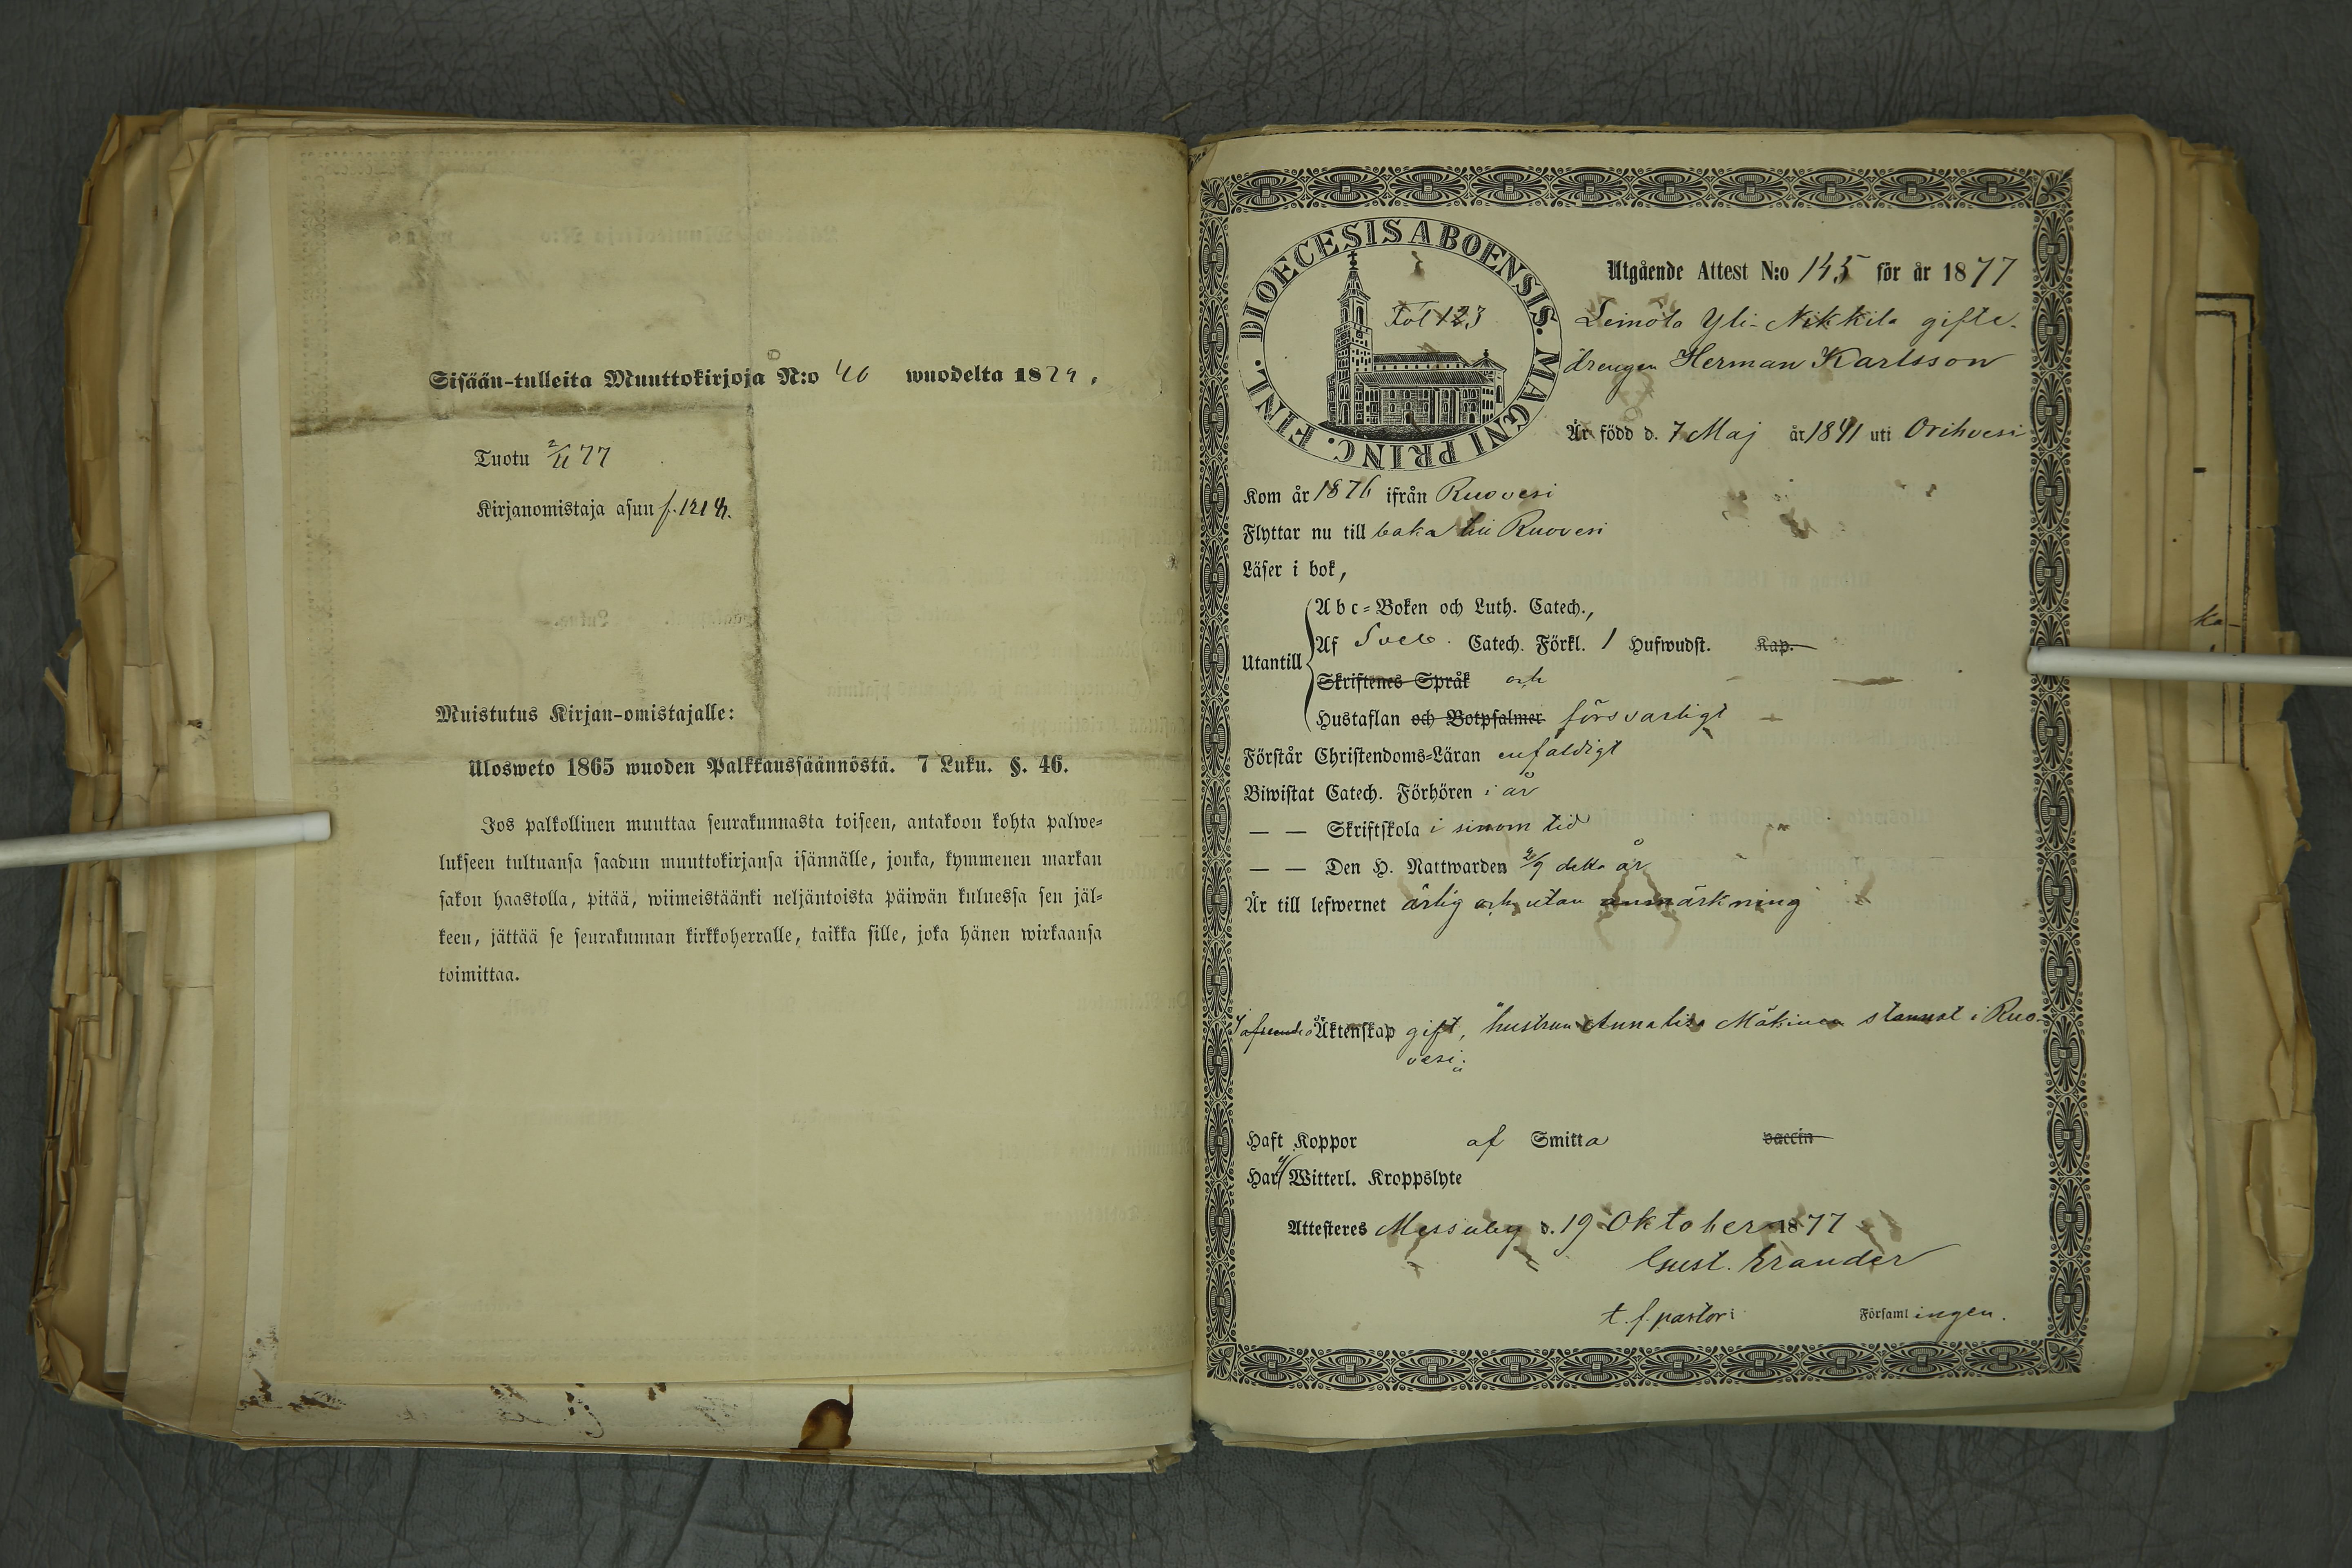 Sisään-tulleita Muuttokirjoja N:o 40 wuodelta 1879.
Tuotu 2/11 77
Kirjanomistaja asuu f. 121
Muistutus Kirjan-omistajalle:
Ulosweto 1865 wuoden Palkkaussäännöstä. 7 Luku. §. 46.
Jos palkollinen muuttaa seurakunnasta toiseen, antakoon kohta palwe-
lukseen tultuansa saadun muuttokirjansa isännälle, jonka, kymmenen markan
sakon haastolla, pitää, wiimeistäänki neljäntoista päiwän kuluessa sen jäl-
keen, jättää se seurakunnan kirkkoherralle, taikka sille, joka hänen wirkaansa
toimittaa.
DIOECESIS ABOENSIS. MAGNI PRINC. FINL.
Fol 123
Utgående Attest N:o 145 för år 1877
Leinola Yli-Nikkilä gifte.
drengen Herman Karlsson
Är född d. 7 Maj år 1841 uti Orihvesi
Kom år 1876 ifrån Ruovesi
Flyttar nu till baka till Ruovesi
Läser i bok,
Utantill
Abc-Boken och Luth. Catech.,
Af Sveb. Catech. Förkl. 1 Hufwudst. Kap.
Skriftenes Språk och
Hustaflan och Botpsalmer försvarligt
Förstår Christendoms-Läran enfaldigt
Biwistat Catech. Förhören i år
— — Skriftskola i sinom tid
— — Den H. Nattwarden /9 detta år
Är till lefwernet ärlig och utan anmärkning
I afseende å Äktenskap gift, hustrun Annaliisa Mäkinen stannat i Ruo-
vesi.
Haft Koppor af Smitta vaccin
Har ej Witterl. Kroppslyte
Attesteres Messuby d. 19 Oktober 1877
Gust. Erander
t. f. pastor i Församlingen.
ka-